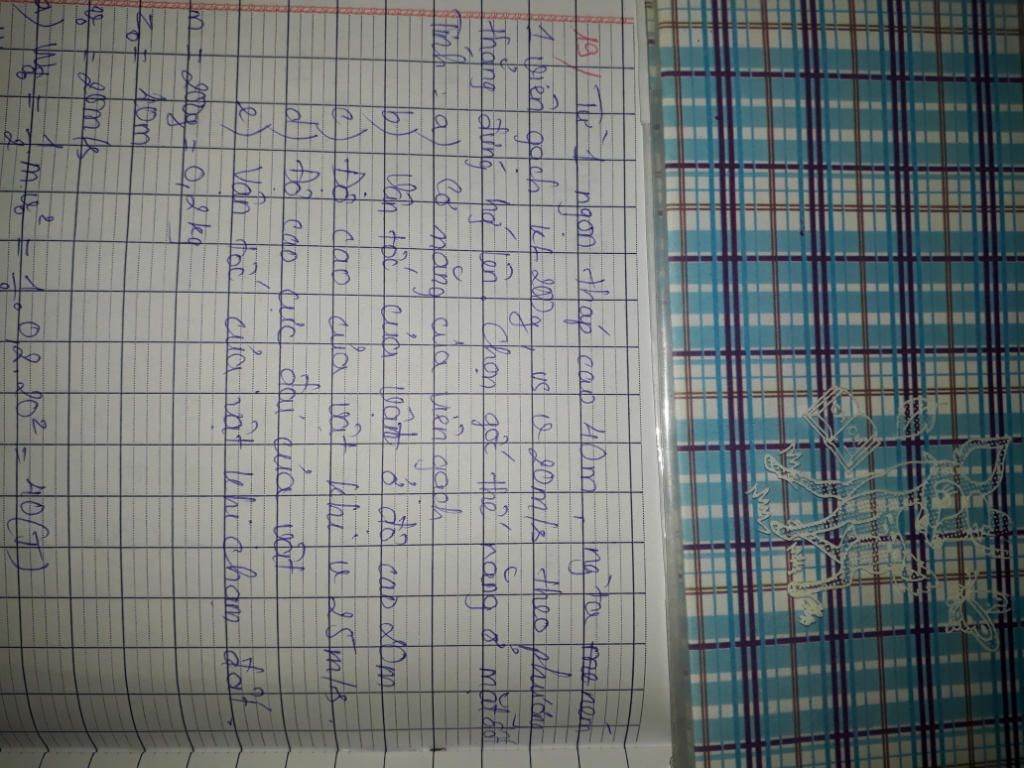 19/ Từ 1 ngọn tháp cao 40m, ng ta ném
1 viên gạch kl 200g vs v 20m/s theo phương
thẳng đứng hg lên. Chọn gốc thế năng ở mặt đất
Tính: a) Cơ năng của viên gạch
b) Vận tốc của vật ở độ cao 20m
c) Độ cao của vật khi v 25m/s.
d) Độ cao cực đại của vật
e) Vận tốc của vật khi chạm đất.
m = 200g = 0,2 kg
z₀ = 10m
= 20m/s
a) W = 1/2 m v² = 1/2 . 0,2 . 20² = 40 (J)